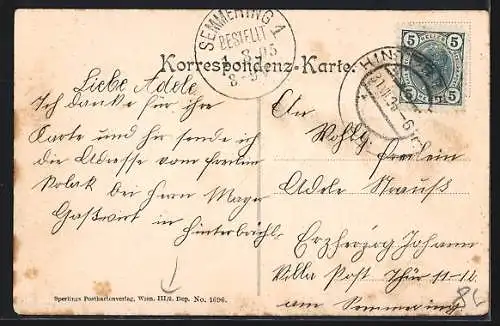 SEMMERING 1
BESTELLT
Korrespondenz-Karte.
5 HELLER 5
5 5
HIN
Liebe Adele
Ich danke für ihre
Karte und ich sende ich
die Adresse vom
bei Herrn Mayr
Gaßwirt in Hinterbrühl
An
Wohlg.
Freilein
Adele Strauß
Erzherzog Johann
Villa Post Thür 11-12
am Semmering
Sperlings Postkartenverlag, Wien, III/2. Dep. No. 1696.